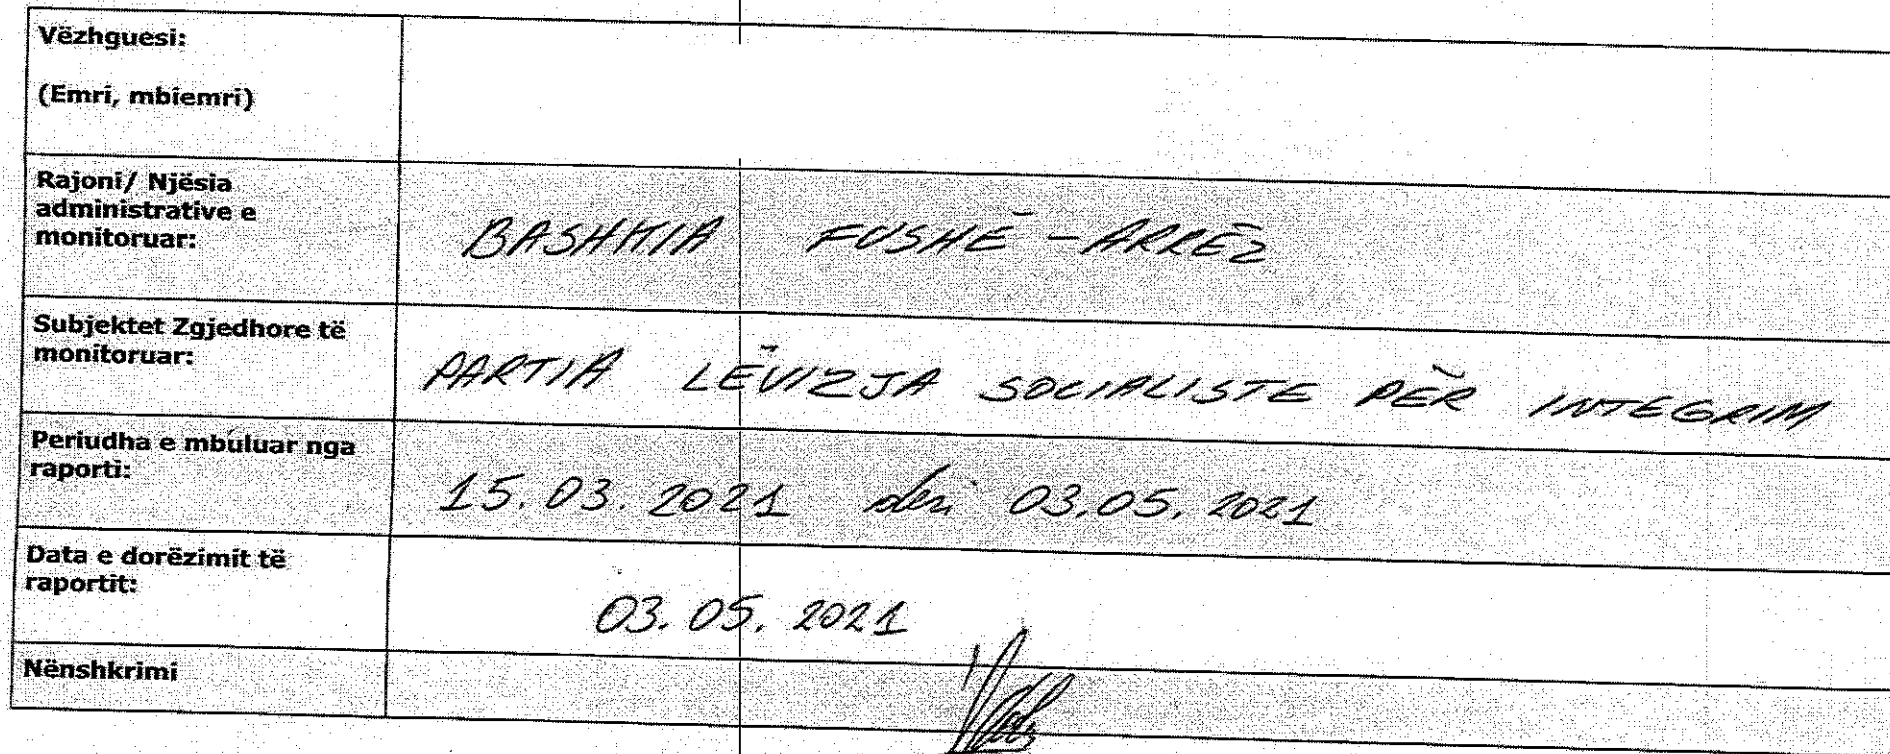 Vëzhguesi:
(Emri, mbiemri)
Rajoni/ Njësia
administrative e
monitoruar:
BASHKIA FUSHË - ARRËZ
Subjektet Zgjedhore të
monitoruar:
PARTIA LËVIZJA SOCIALISTE PËR INTEGRIM
Periudha e mbuluar nga
raporti:
15.03.2021 deri 03.05.2021
Data e dorëzimit të
raportit:
03.05.2021
Nënshkrimi